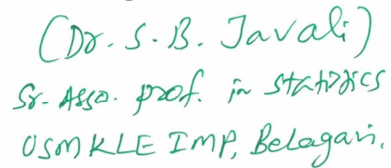 (Dr. S. B. Javali)
Sr. Asso. prof. in statistics
USM KLE IMP, Belagavi.